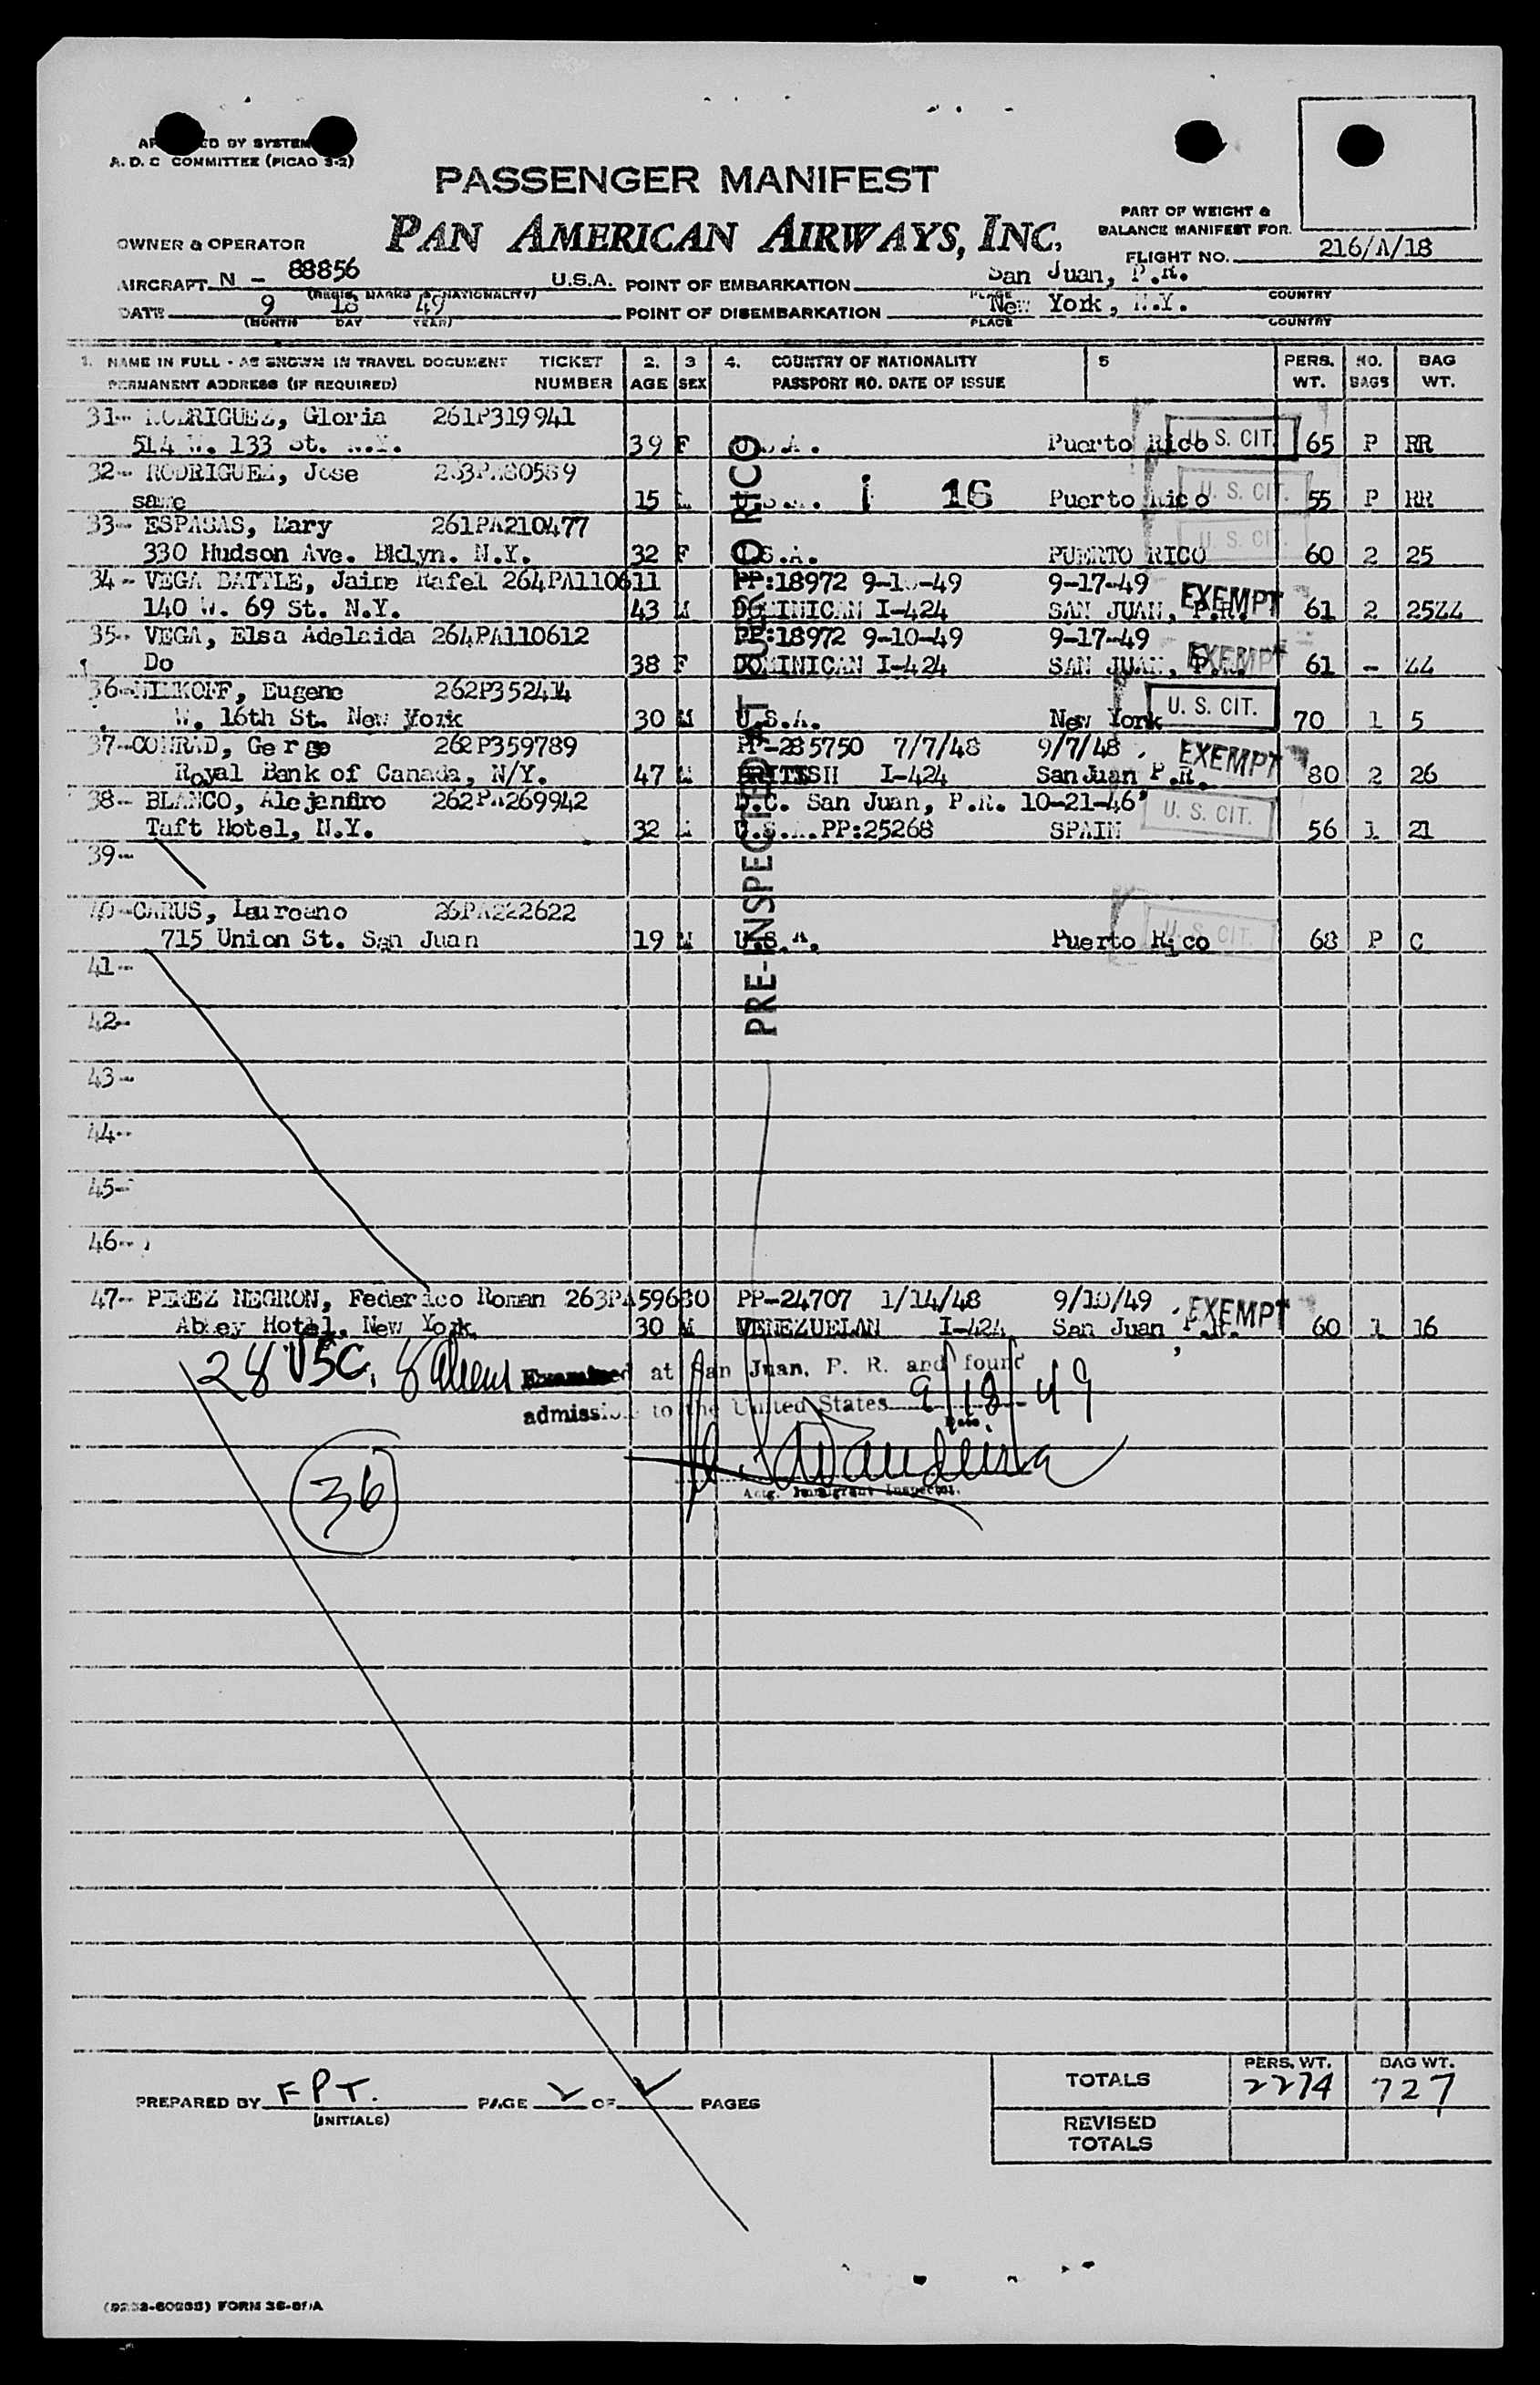 BY SYSTEM
A. D. C COMMITTEE (PICAO S-2)
PASSENGER MANIFEST
PAN AMERICAN AIRWAYS, INC.
PART OF WEIGHT &
BALANCE MANIFEST FOR
OWNER & OPERATOR
FLIGHT NO. 216/A/18
AIRCRAFT N - 88856 U.S.A. POINT OF EMBARKATION San Juan, P.R.
(REGIS. MARKS & NATIONALITY) PLACE COUNTRY
DATE 9 18 49 POINT OF DISEMBARKATION New York, N.Y.
(MONTH DAY YEAR) PLACE COUNTRY
1. NAME IN FULL - AS SHOWN IN TRAVEL DOCUMENT TICKET 2. 3 4. COUNTRY OF NATIONALITY 5 PERS. NO. BAG
PERMANENT ADDRESS (IF REQUIRED) NUMBER AGE SEX PASSPORT NO. DATE OF ISSUE WT. BAGS WT.
31-- RODRIGUEZ, Gloria 261P319941
514 W. 133 St. N.Y. 39 F U.S.A. Puerto Rico U. S. CIT. 65 P RR
32-- RODRIGUEZ, Jose
same 15 U.S.A. 16 Puerto Rico U. S. CIT. 55 P RR
33- ESPADAS, Mary 261PA210477
330 Hudson Ave. Bklyn. N.Y. 32 F U.S.A. PUERTO RICO U. S. CIT. 60 2 25
34- VEGA BATTLE, Jaime Rafel 264PA110611 PP:18972 9-1 -49 9-17-49
140 W. 69 St. N.Y. 43 M DOMINICAN I-424 SAN JUAN, P.R. EXEMPT 61 2 25ZZ
35- VEGA, Elsa Adelaida 264PA110612 PP:18972 9-10-49 9-17-49
Do 38 F DOMINICAN I-424 SAN JUAN, P.R. EXEMPT 61 - ZZ
36- Eugene 262P352414
W. 16th St. New York 30 M U.S.A. New York U. S. CIT. 70 1 5
37-CONRAD, Gerge 262P359789 PP-285750 7/7/48 9/7/48
Royal Bank of Canada, N/Y. 47 M BRITISH I-424 San Juan P.R. EXEMPT 80 2 26
38- BLANCO, Alejandro 262PA269942 D.C. San Juan, P.R. 10-21-46
Taft Hotel, N.Y. 32 M U.S.A. PP:25268 SPAIN U. S. CIT. 56 1 21
39--
40-CARUS, Laureano 26PA222622
715 Union St. San Juan 19 M U.S.A. Puerto Rico U. S. CIT. 68 P C
PRE-INSPECTED AT PUERTO RICO
41--
42--
43--
44--
45--
46--
47- PEREZ NEGRON, Federico Roman 263PA59680 PP-24707 1/14/48 9/10/49
Abbey Hotel, New York 30 M VENEZUELAN I-424 San Juan P.R. EXEMPT 60 1 16
28 USC. 8 aliens Examined at San Juan, P. R. and found
admission to the United States 9/18/49
Date
36
Actg. Immigrant Inspector.
PREPARED BY F P T. PAGE 2 OF 2 PAGES
(INITIALS)
TOTALS PERS. WT. 2274 BAG WT. 727
REVISED
TOTALS